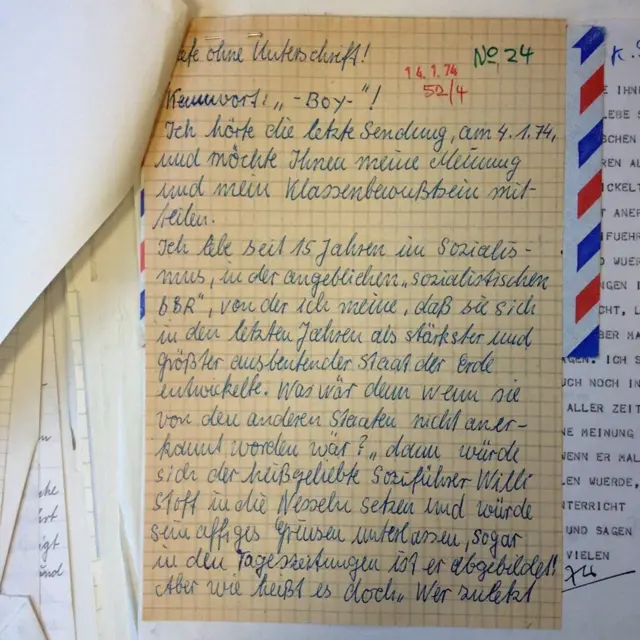 ohne Unterschrift!
No 24
14.1.74
52/4
Kennwort: „-Boy-"!
Ich hörte die letzte Sendung, am 4.1.74,
und möchte Ihnen meine Meinung
und mein Klassenbewußtsein mit-
teilen.
Ich lebe seit 15 Jahren im Sozialis-
mus, in der angeblichen „sozialistischen
DDR", von der ich meine, daß sie sich
in den letzten Jahren als stärkster und
größter ausbeutender Staat der Erde
entwickelte. Was wär denn wenn sie
von den anderen Staaten nicht aner-
kannt worden wär? „dann würde
sich der heißgeliebte Soziführer Willi
Stoff in die Nesseln setzen und würde
sein affiges Grinsen unterlassen, sogar
in den Tageszeitungen ist er abgebildet!
Aber wie heißt es doch „Wer zuletzt
K.
E IHNE
LEBE S
SCHEN
REN AL
ICKELT
T ANER
IFUEHR
D WUER
NGEN I
CHT, L
ER MA
AGEN. ICH S
UCH NOCH IN
ALLER ZEIT
NE MEINUNG
WENN ER MAL
LEN WUERDE,
NTERRICHT
UND SAGEN
VIELEN
74
che
hrt
igt
und